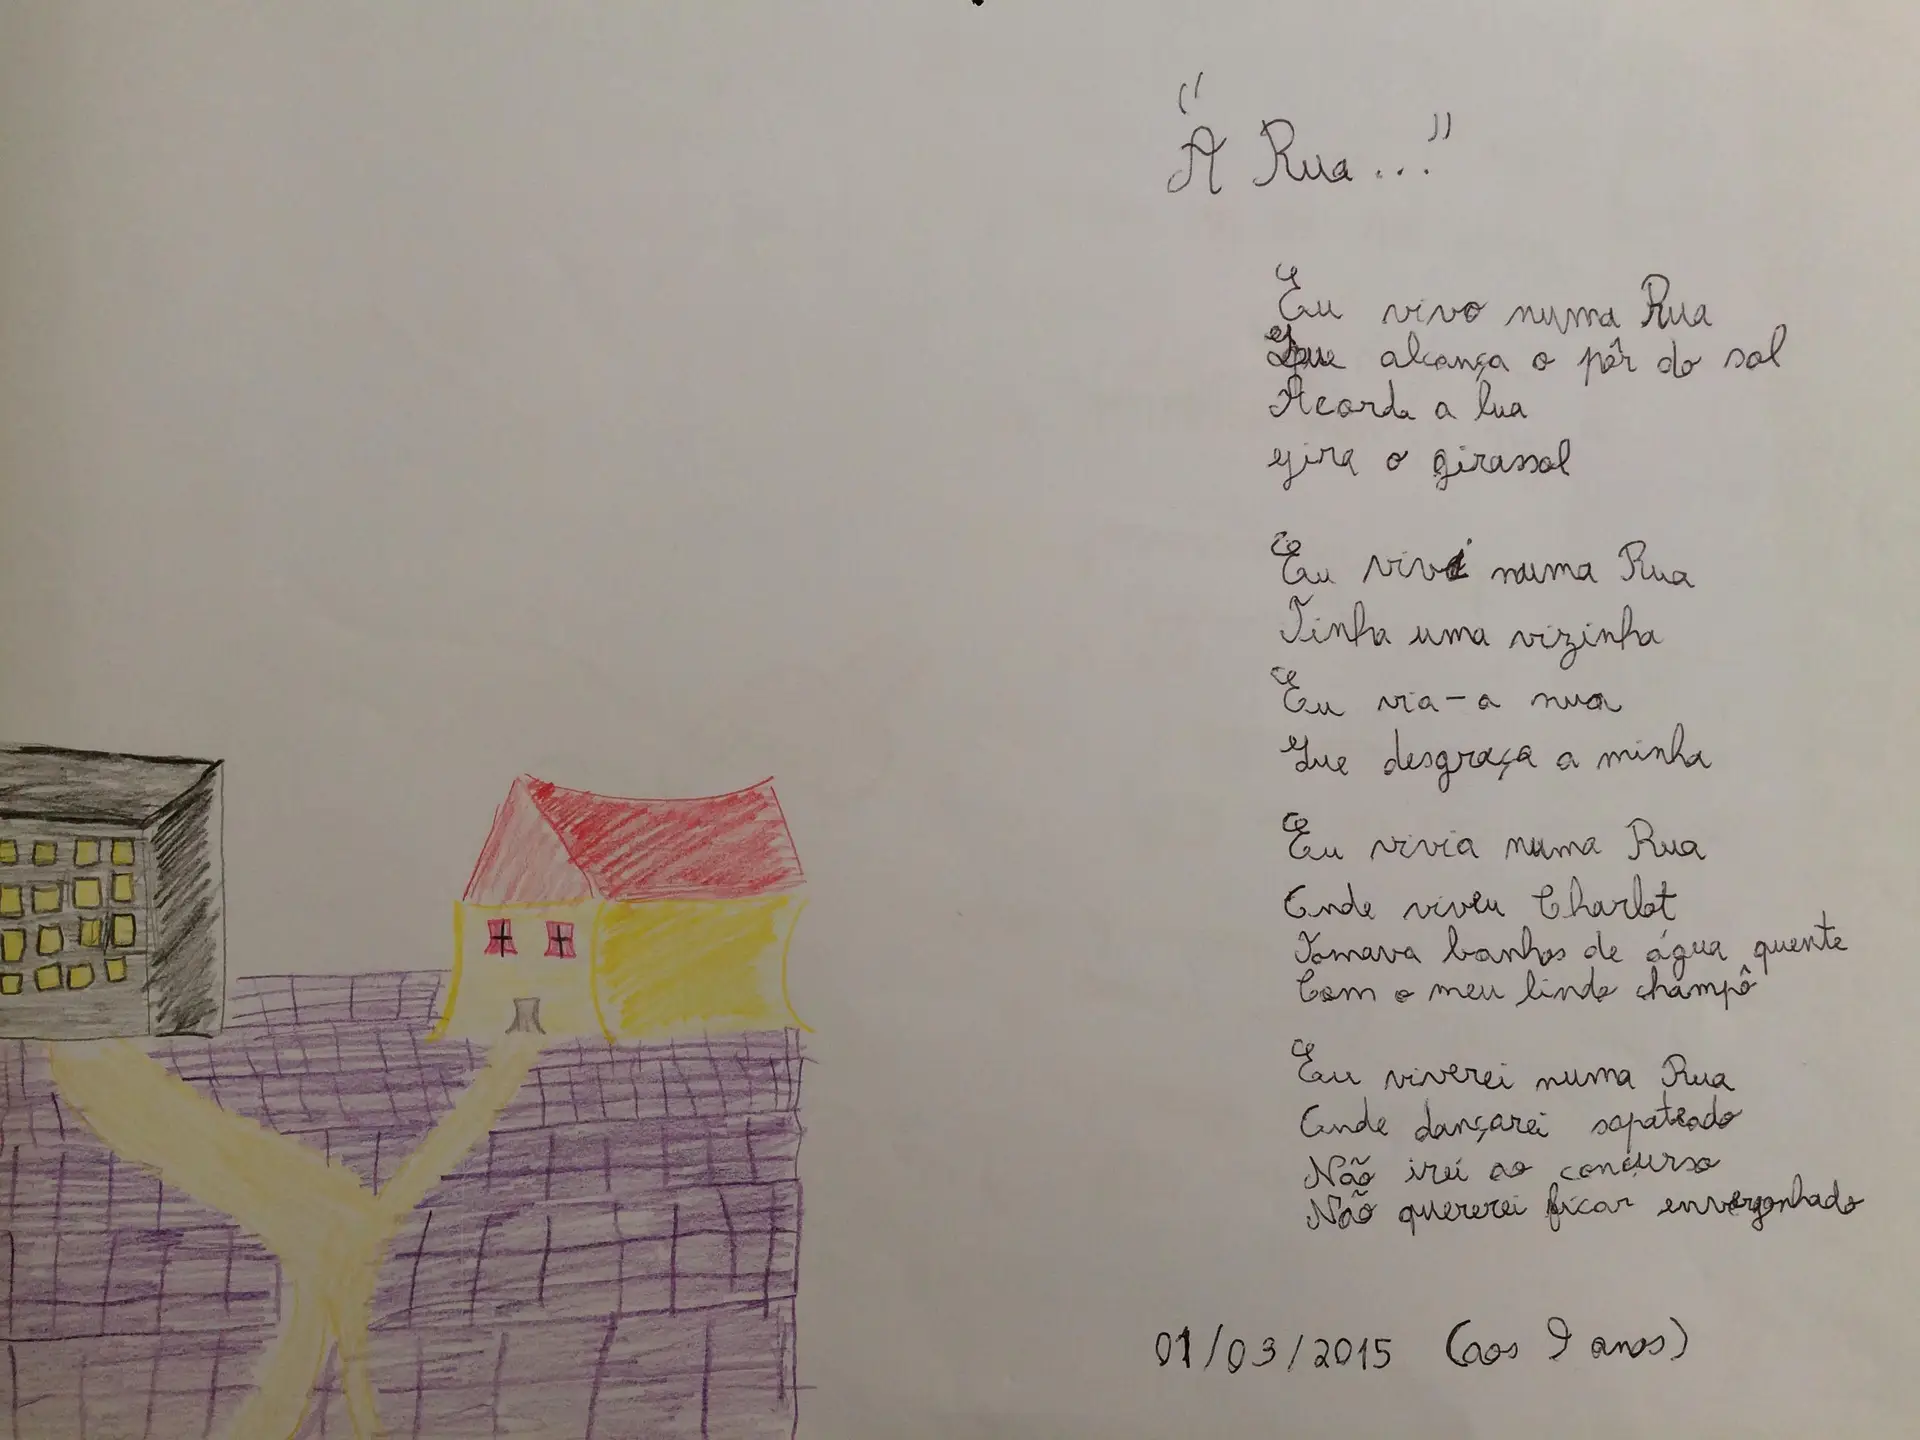 "A Rua..."
Eu vivo numa Rua
Que alcança o pôr do sol
Acorda a lua
gira o girassol
Eu vivi numa Rua
Tinha uma vizinha
Eu via-a nua
Que desgraça a minha
Eu vivia numa Rua
Onde viveu Charlot
Tomava banhos de água quente
Com o meu lindo champô
Eu viverei numa Rua
Onde dançarei sapateado
Não irei ao concurso
Não quererei ficar envergonhado
01/03/2015 (aos 9 anos)